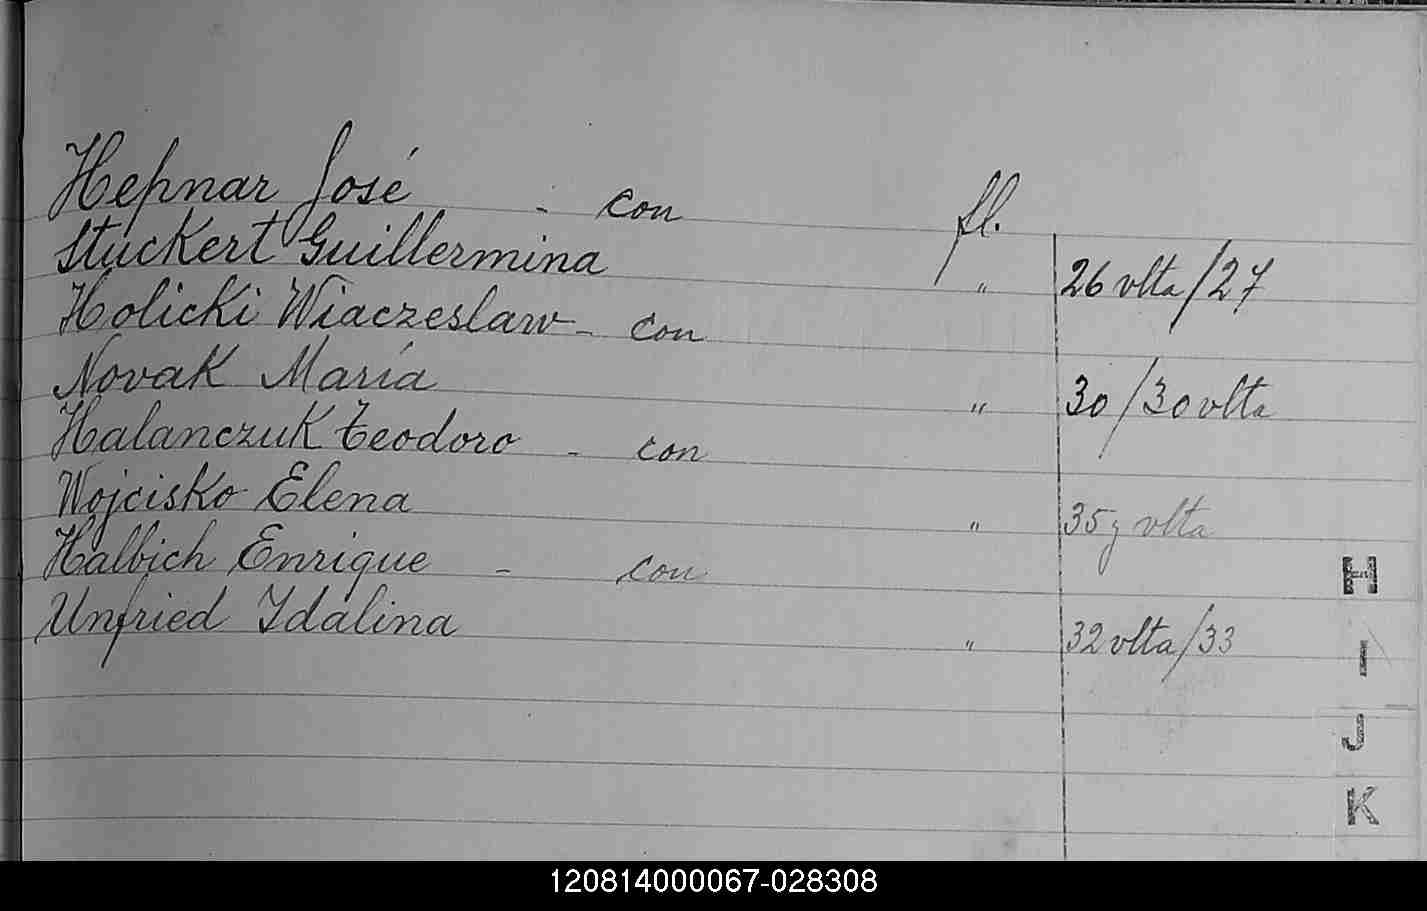 Hepnar José - con fl.
Stuckert Guillermina " 26 vlta/27
Holicki Wiaczeslaw - con
Novak María " 30/30 vlta
Halanczuk Teodoro - con
Wojcisko Elena " 35 y vlta
Halbich Enrique - con
Unfried Idalina " 32 vlta/33
H
I
J
K
120814000067-028308